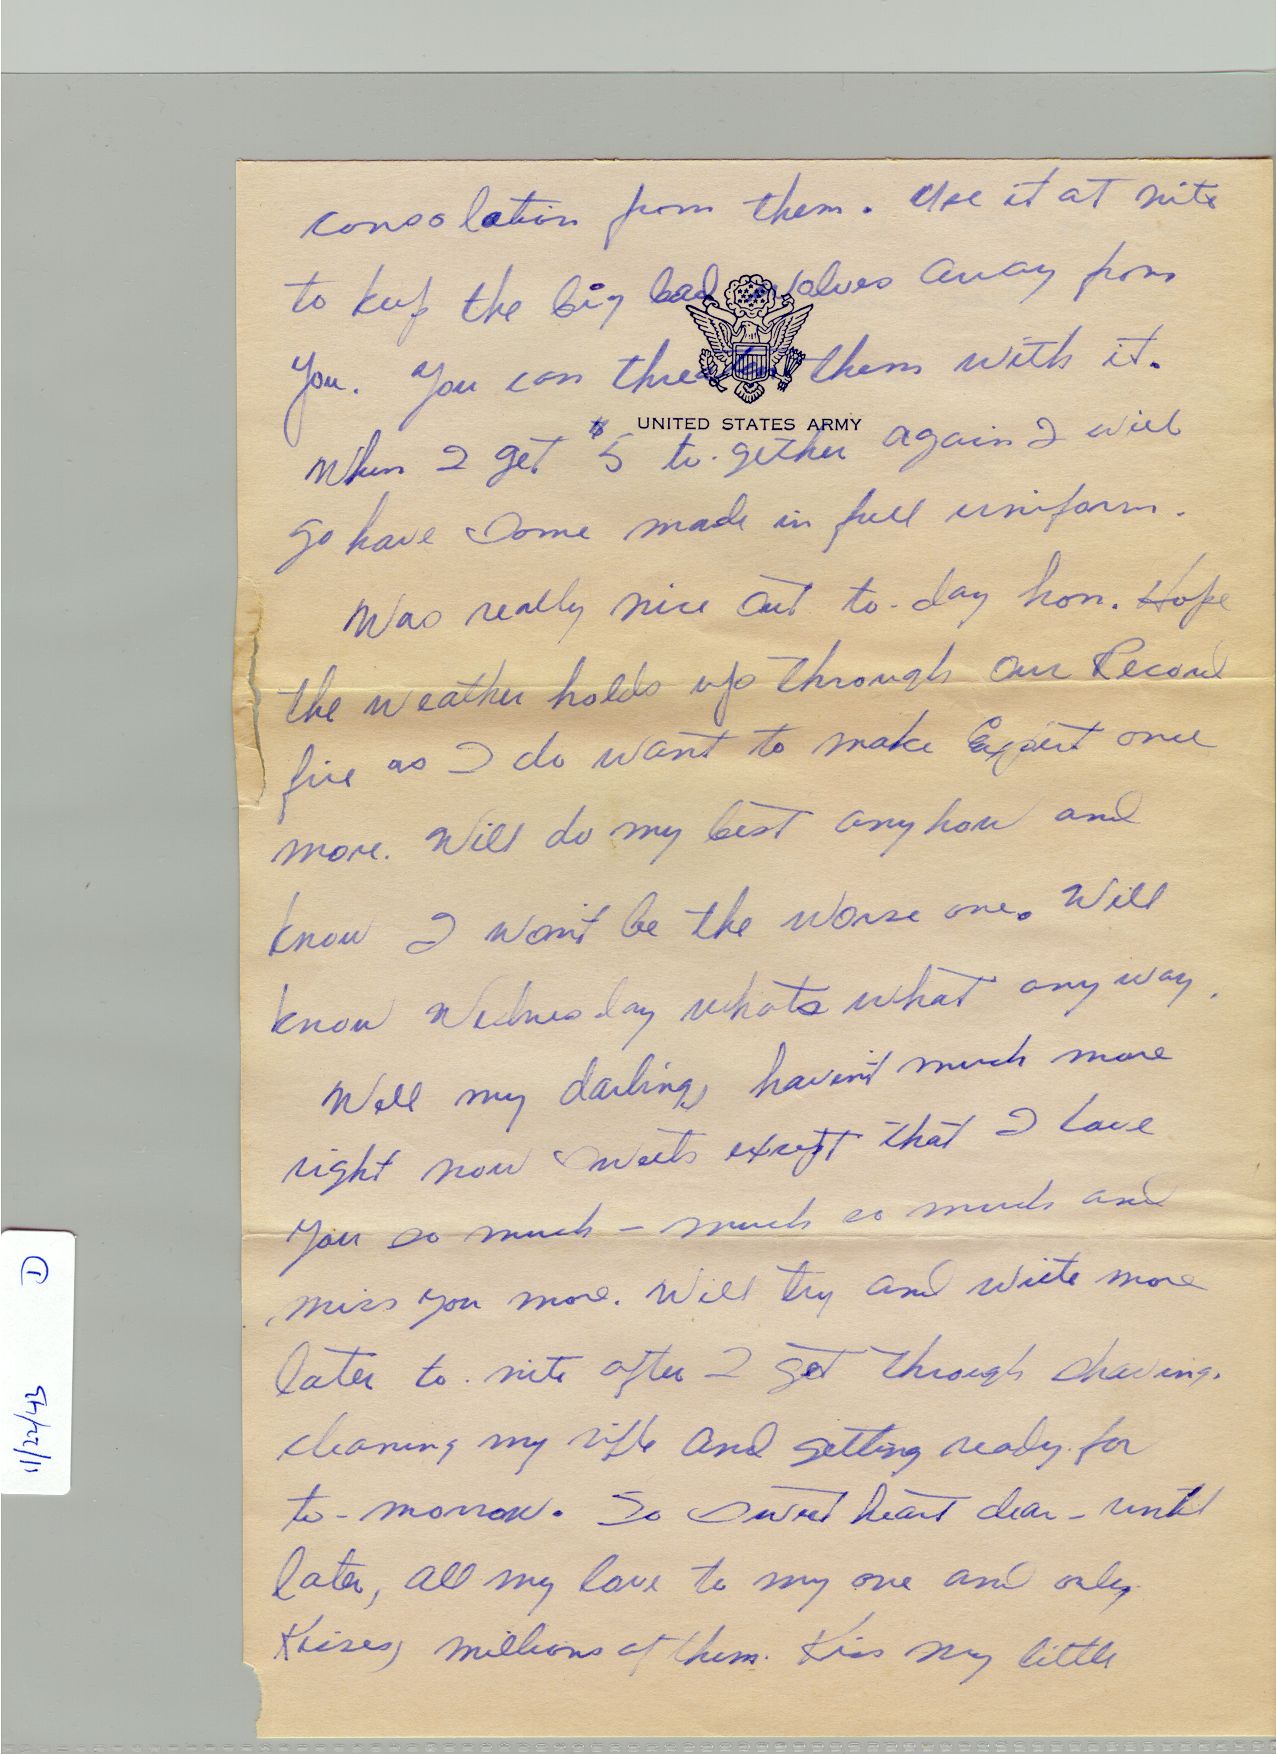 consolation from them. Use it at nite
to keep the big bad wolves away from
you. You can threaten them with it.
UNITED STATES ARMY
When I get $5 to-gether again I will
go have some made in full uniform.
Was really nice out to-day hon. Hope
the weather holds up through our Record
fire as I do want to make Expert once
more. Will do my best anyhow and
know I won't be the worse one. Will
know Wednesday whats what anyway.
Well my darling, haven't much more
right now sweets except that I love
you so much - much so much and
miss you more. Will try and write more
later to-nite after I get through shaving,
cleaning my rifle and getting ready for
to-morrow. So sweet heart dear - until
later, all my love to my one and only.
Kisses, millions of them. Kiss my little
11/22/43
1